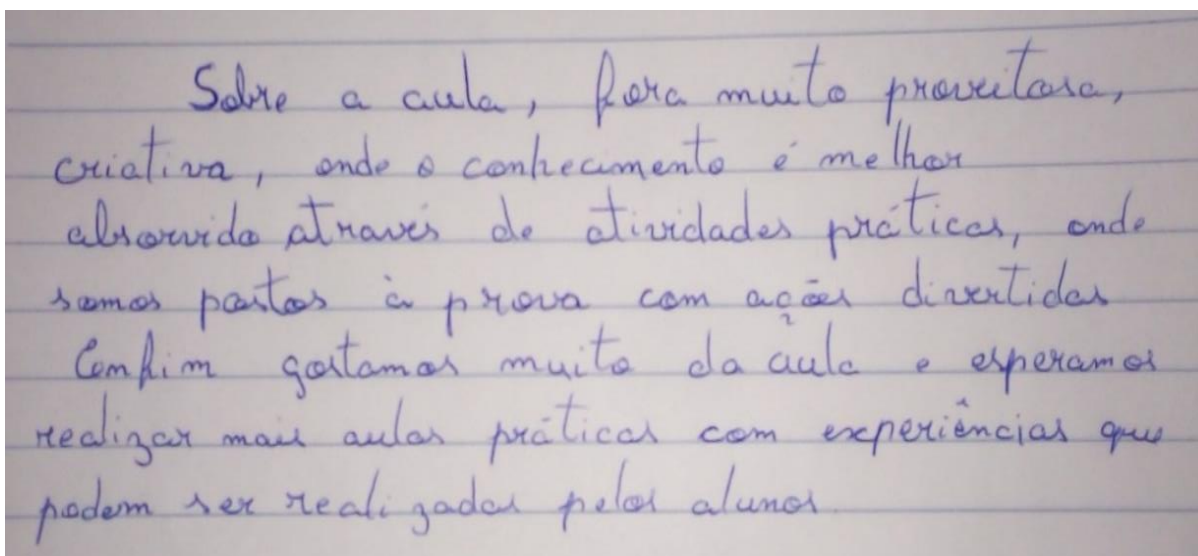 Sobre a aula, fora muito proveitosa,
criativa, onde o conhecimento é melhor
absorvido através de atividades práticas, onde
somos postos à prova com ações divertidas
Enfim gostamos muito da aula e esperamos
realizar mais aulas práticas com experiências que
podem ser realizadas pelos alunos.